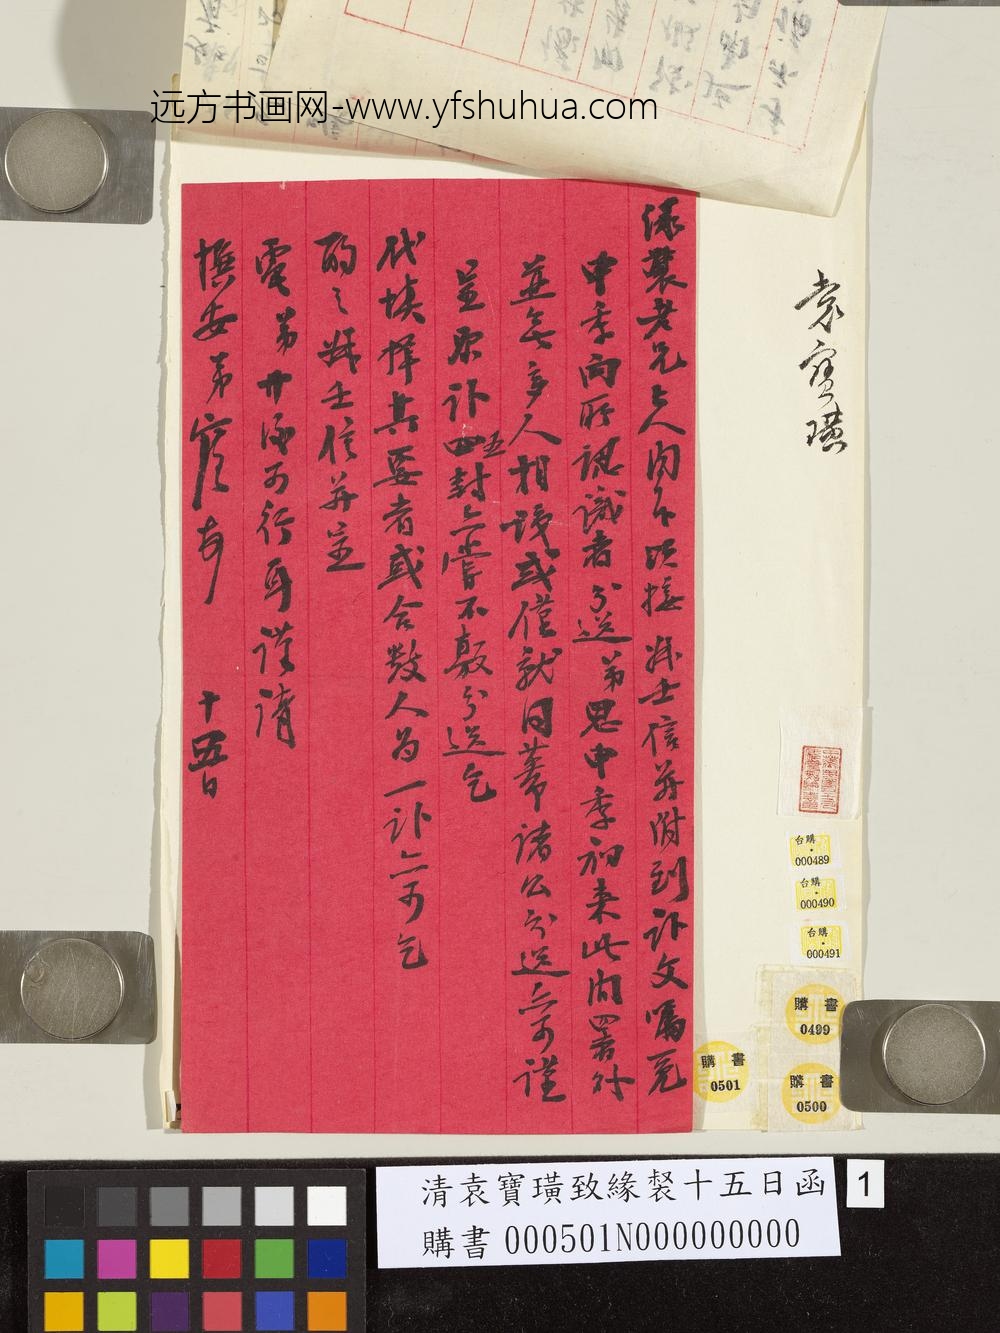 远方书画网-www.yfshuhua.com
緣裻老兄大人閣下昨接
士信并附到訃文囑兄
中季向所認識者分送弟思中季初来此间署外
並無多人相識或僅就同幕諸公分送亦可謹
呈原訃四五封亦嘗不敷分送乞
代块擇其要者或合數人为一訃亦可乞
酌之
士信并呈
電弟廿
可行耳謹請
撰安弟
十五日
袁寶璜
台購
000489
台購
000490
台購
000491
購書
0499
購書
0500
購書
0501
清袁寶璜致緣裻十五日函
購書000501N000000000
1